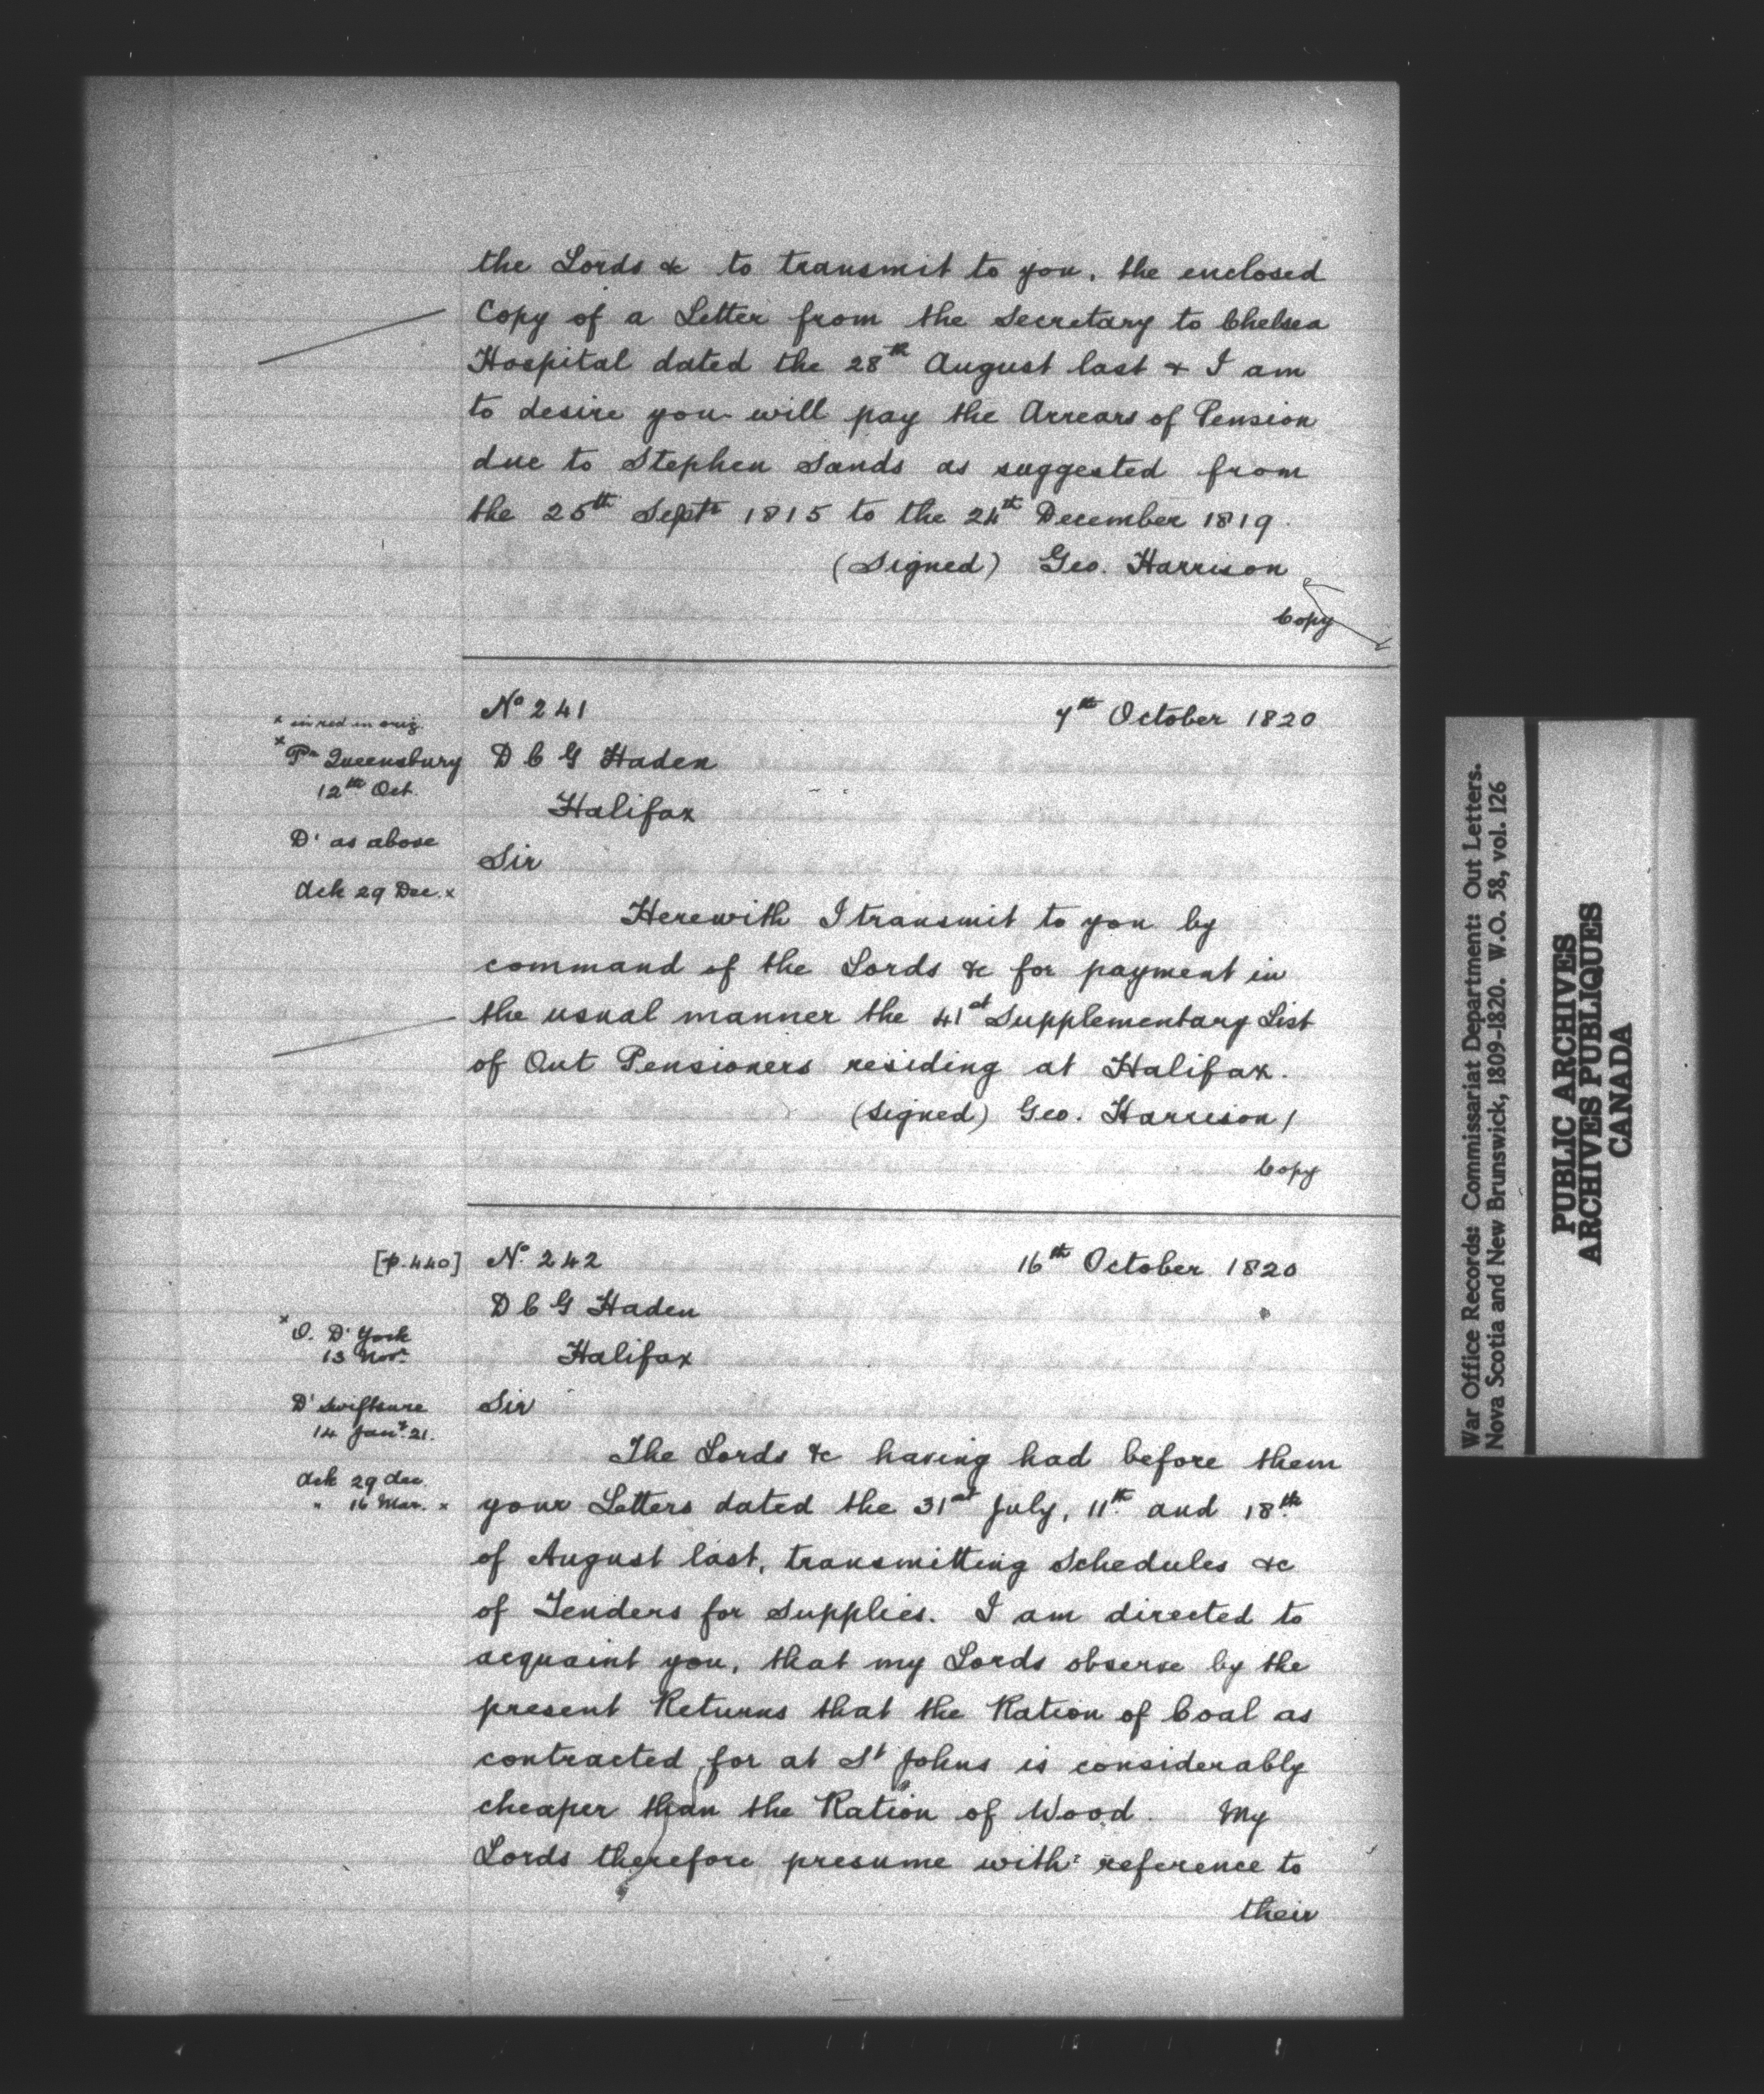 the Lords &c to transmit to you, the enclosed
Copy of a Letter from the Secretary to Chelsea
Hospital dated the 28th August last & I am
to desire you will pay the Arrears of Pension
due to Stephen Sands as suggested from
the 25th Septr 1815 to the 24th December 1819.
(Signed) Geo. Harrison
Copy
x in red in orig.
No 241
7th October 1820
x Pr Queensbury
12th Oct.
D C G Haden
Halifax
Do as above
Sir
Ack 29 Dec. x
Herewith I transmit to you by
command of the Lords &c for payment in
the usual manner the 41st Supplementary List
of Out Pensioners residing at Halifax.
(signed) Geo. Harrison /
Copy
[p. 440]
No. 242
16th October 1820
D C G Haden
x O. D. York
13 Novr
Halifax
Do Swiftsure
14 Jany. 21.
Sir
Ack 29 dec.
" 16 Mar. x
The Lords &c having had before them
your Letters dated the 31st July, 11th and 18th
of August last, transmitting Schedules &c
of Tenders for Supplies. I am directed to
acquaint you, that my Lords observe by the
present Returns that the Ration of Coal as
contracted for at St Johns is considerably
cheaper than the Ration of Wood. My
Lords therefore presume with reference to
their
War Office Records: Commissariat Department: Out Letters.
Nova Scotia and New Brunswick, 1809-1820. W.O. 58, vol. 126
PUBLIC ARCHIVES
ARCHIVES PUBLIQUES
CANADA